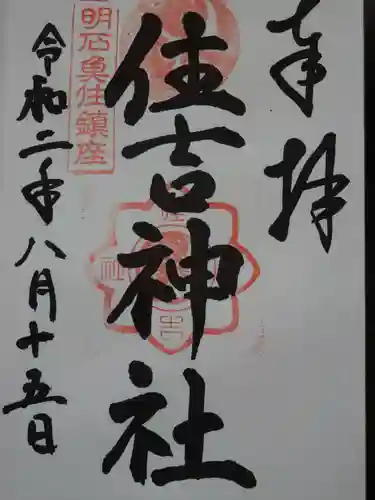 奉拝
住吉神社
明石魚住鎮座
令和二年八月十五日